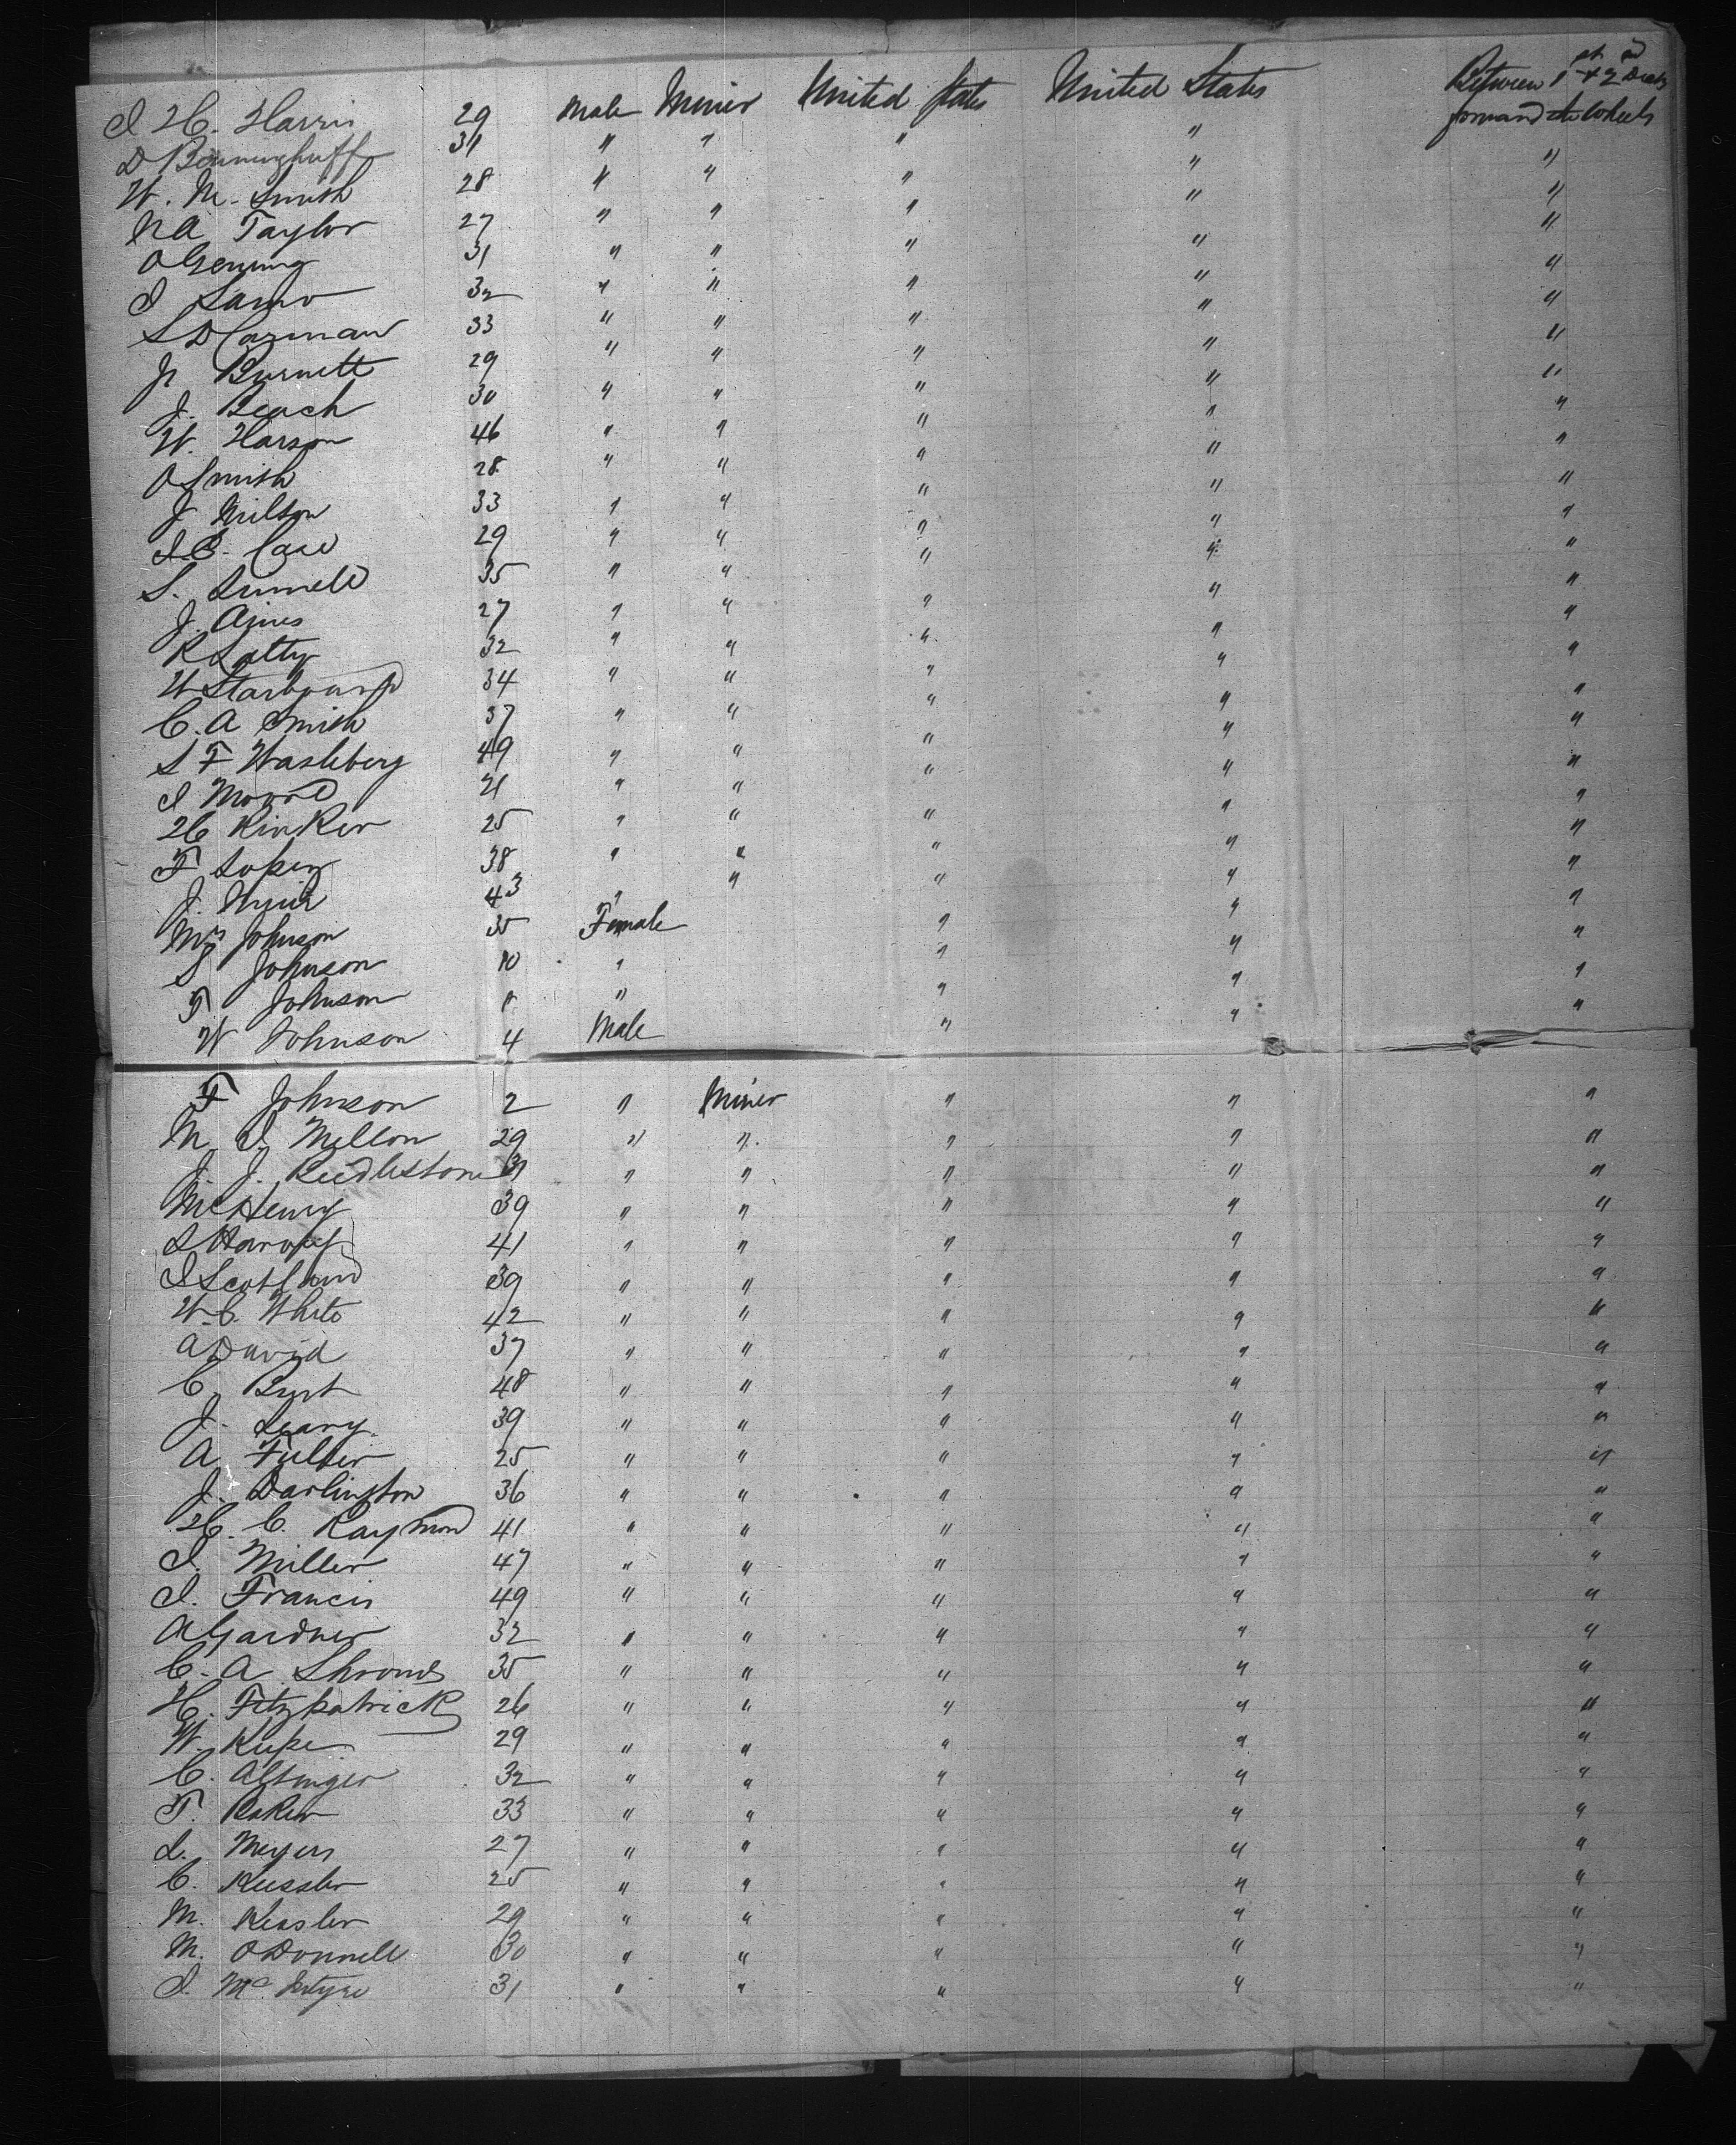 I H. Harris 29 Male Miner United States United States Between 1st & 2d Decks forward the Wheels
D Benninghuff 31 " " " " "
W. M. Smith 28 " " " " "
N A Taylor 27 " " " " "
O Genung 31 " " " " "
I 32 " " " " "
S D Carman 33 " " " " "
Jr Burnett 29 " " " " "
J. Beach 30 " " " " "
W. Harson 46 " " " " "
O Smith 28 " " " " "
J Wilson 33 " " " " "
I. C. Case 29 " " " " "
S. 35 " " " " "
J. 27 " " " " "
R Latty 32 " " " " "
W 34 " " " " "
C. A Smith 37 " " " " "
S F Washeberg 49 " " " " "
I Moore 21 " " " " "
H Rinker 25 " " " " "
F 38 " " " " "
J. 43 " " " " "
Mrs Johnson 35 Female " " "
S Johnson 10 " " " "
T Johnson 8 " " " "
W Johnson 4 Male " " "
F Johnson 2 " Miner " " "
M I. Mellon 29 " " " " "
J. J. Reedlestone 31 " " " " "
McHenry 39 " " " " "
S Harvey 41 " " " " "
I Scotland 39 " " " " "
W. C. White 42 " " " " "
A David 37 " " " " "
C. Burt 48 " " " " "
J. Leary 39 " " " " "
A Fuller 25 " " " " "
J. Darlington 36 " " " " "
H. C. Raymond 41 " " " " "
I. Miller 47 " " " " "
I. Francis 49 " " " " "
A Gardner 32 " " " " "
C. A Shrouds 35 " " " " "
H. Fitzpatrick 26 " " " " "
W. 29 " " " " "
C. Altinger 32 " " " " "
T. Baker 33 " " " " "
L. Meyers 27 " " " " "
C. Kessler 25 " " " " "
M. Kessler 29 " " " " "
M. ODonnell 30 " " " " "
I. Mc Intyre 31 " " " " "